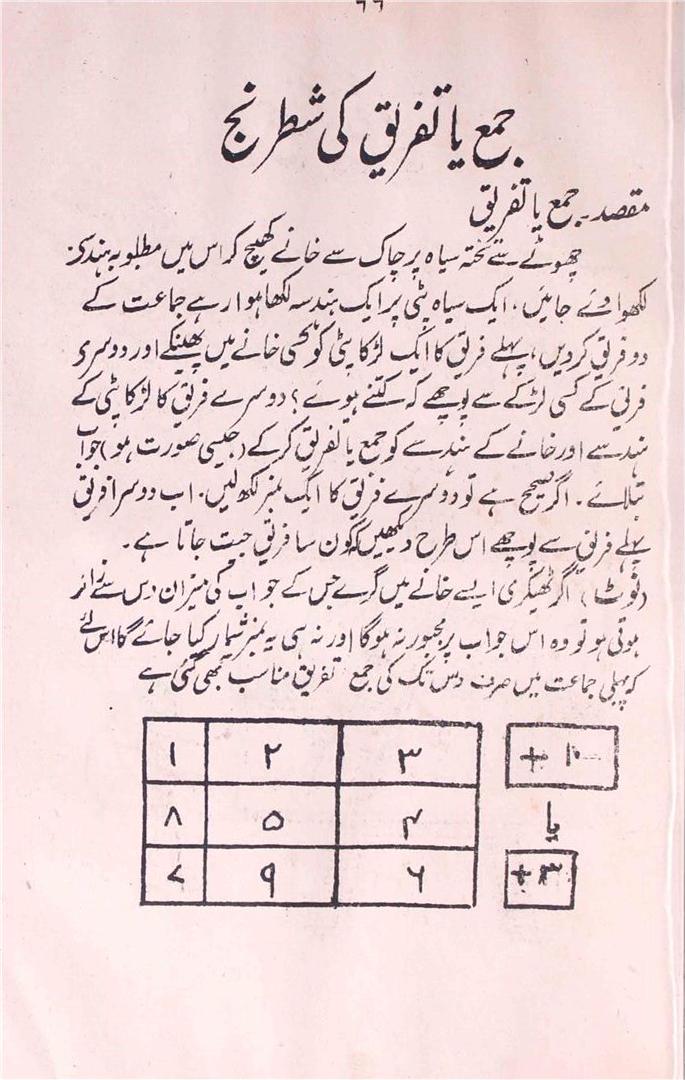 ۶۶
جمع یا تفریق کی شطرنج
مقصد۔ جمع یا تفریق
چھوٹے سے تختہ سیاہ پر چاک سے خانے کھینچ کر اس میں مطلوبہ ہندسے
لکھوا دئے جائیں ۔ ایک سیاہ پٹی پر ایک ہندسہ لکھا ہوا رہے جماعت کے
دو فریق کردیں ، پہلے فریق کا ایک لڑکا پٹی کو کسی خانے میں پھینکے اور دوسری
فریق کے کسی لڑکے سے پوچھے کہ کتنے ہوئے ؟ دوسرے فریق کا لڑکا پٹی کے
ہندسے اور خانے کے ہندسے کو جمع یا تفریق کرکے (جیسی صورت ہو) جواب
بتلائے ۔ اگر صحیح ہے تو دوسرے فریق کا ایک نمبر لکھ لیں ۔ اب دوسرا فریق
پہلے فریق سے پوچھے اس طرح دیکھیں کون سا فریق جیت جاتا ہے ۔
(نوٹ) اگر ٹھیکری ایسے خانے میں گرے جس کے جواب کی میزان دس سے زائد
ہوتی ہو تو وہ اس جواب پر مجبور نہ ہوگا اور نہ ہی یہ نمبر شمار کیا جائے گا اس لئے
کہ پہلی جماعت میں صرف دس تک کی جمع تفریق مناسب سمجھی گئی ہے
۳ ۲ ۱
۴ ۵ ۸
۶ ۹ ۷
یا
+ ۳